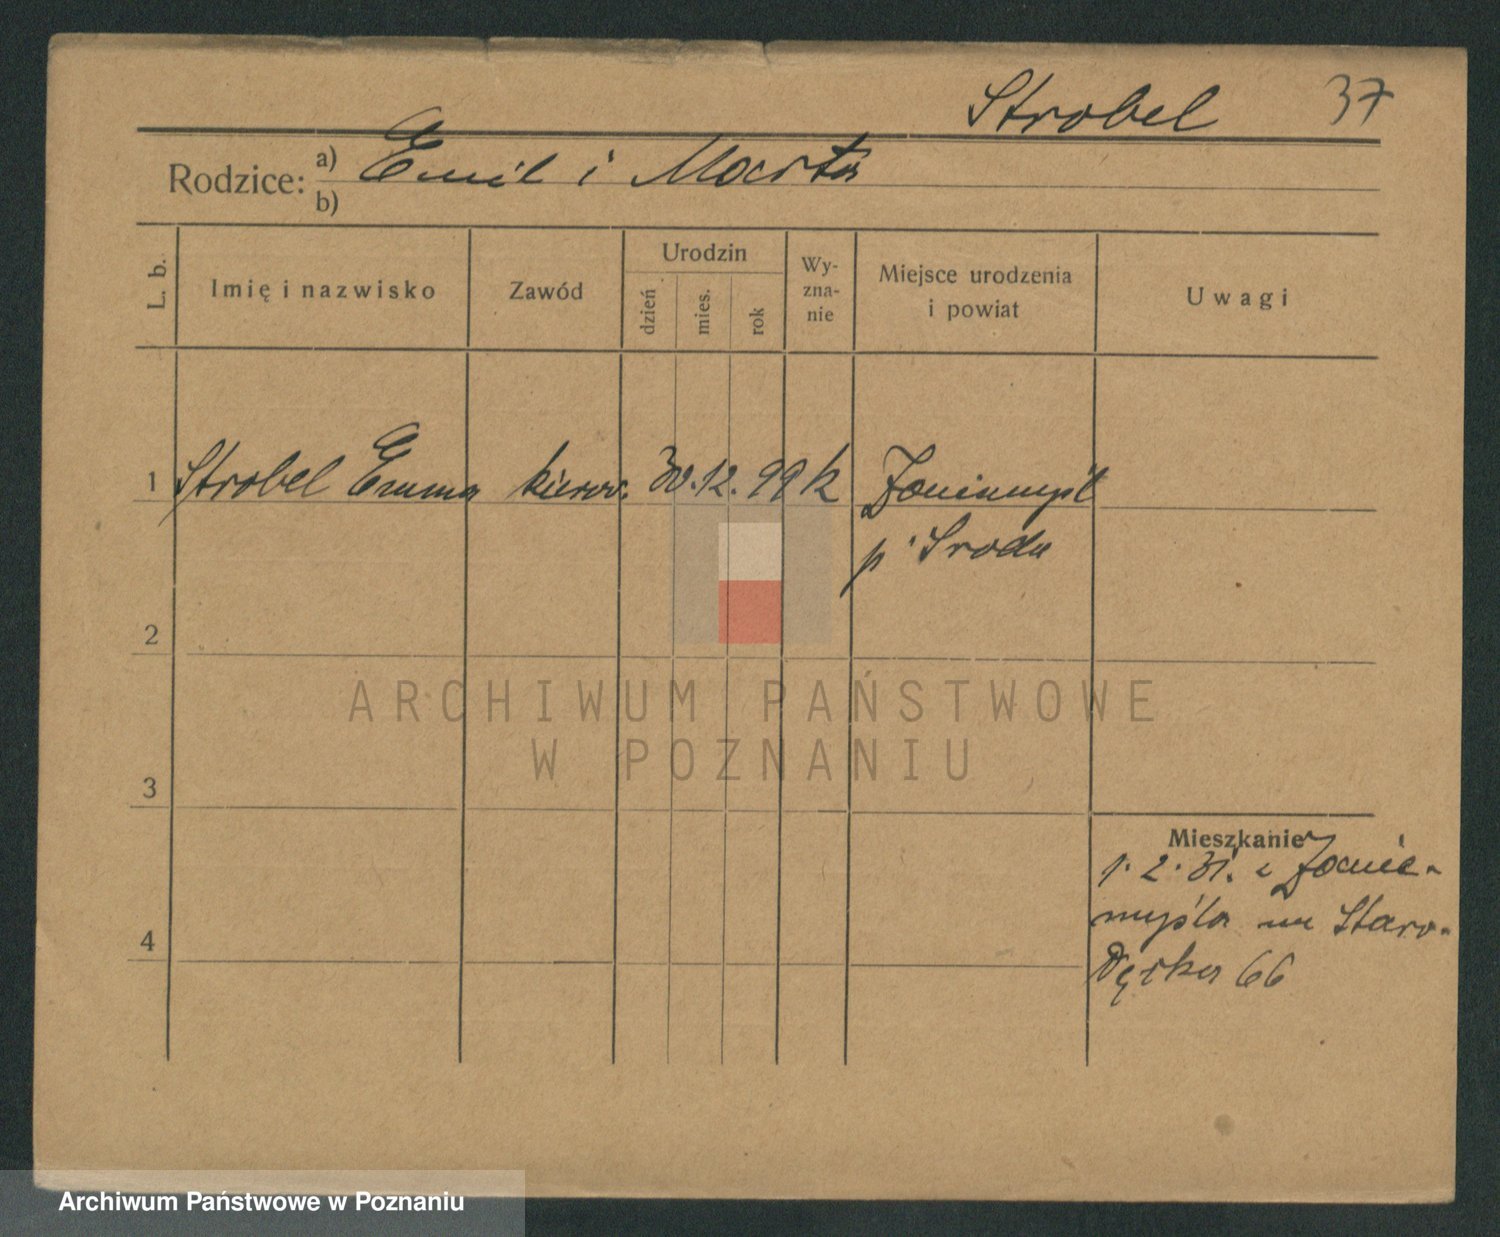 Strobel 37
Rodzice: a) Emil i Marta
b)
L. b. Imię i nazwisko Zawód Urodzin dzień mies. rok Wy-zna-nie Miejsce urodzenia i powiat Uwagi
1 Strobel Emma kierow. 30.12.99 k Zaniemyśl
p. Sroda
2
ARCHIWUM PAŃSTWOWE
W POZNANIU
3
Mieszkanie
1.2.31. z Zanie-
myśla na Staro-
łęcka 66
4
Archiwum Państwowe w Poznaniu